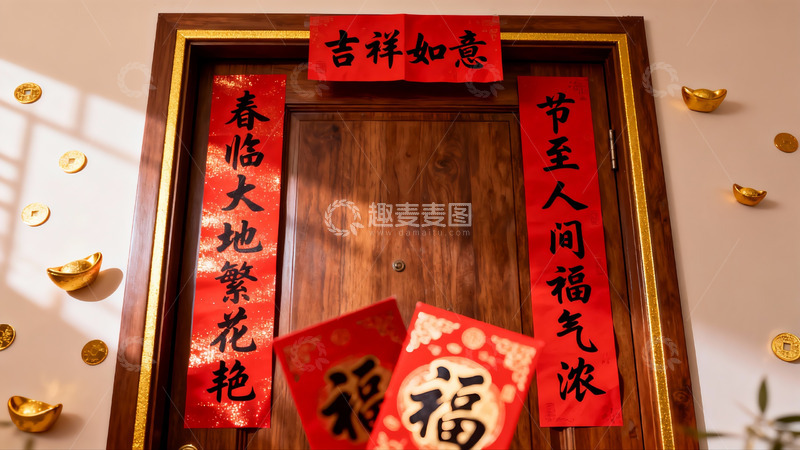 吉祥如意
春临大地繁花艳
节至人间福气浓
福
福
趣麦麦图
www.damaitu.com